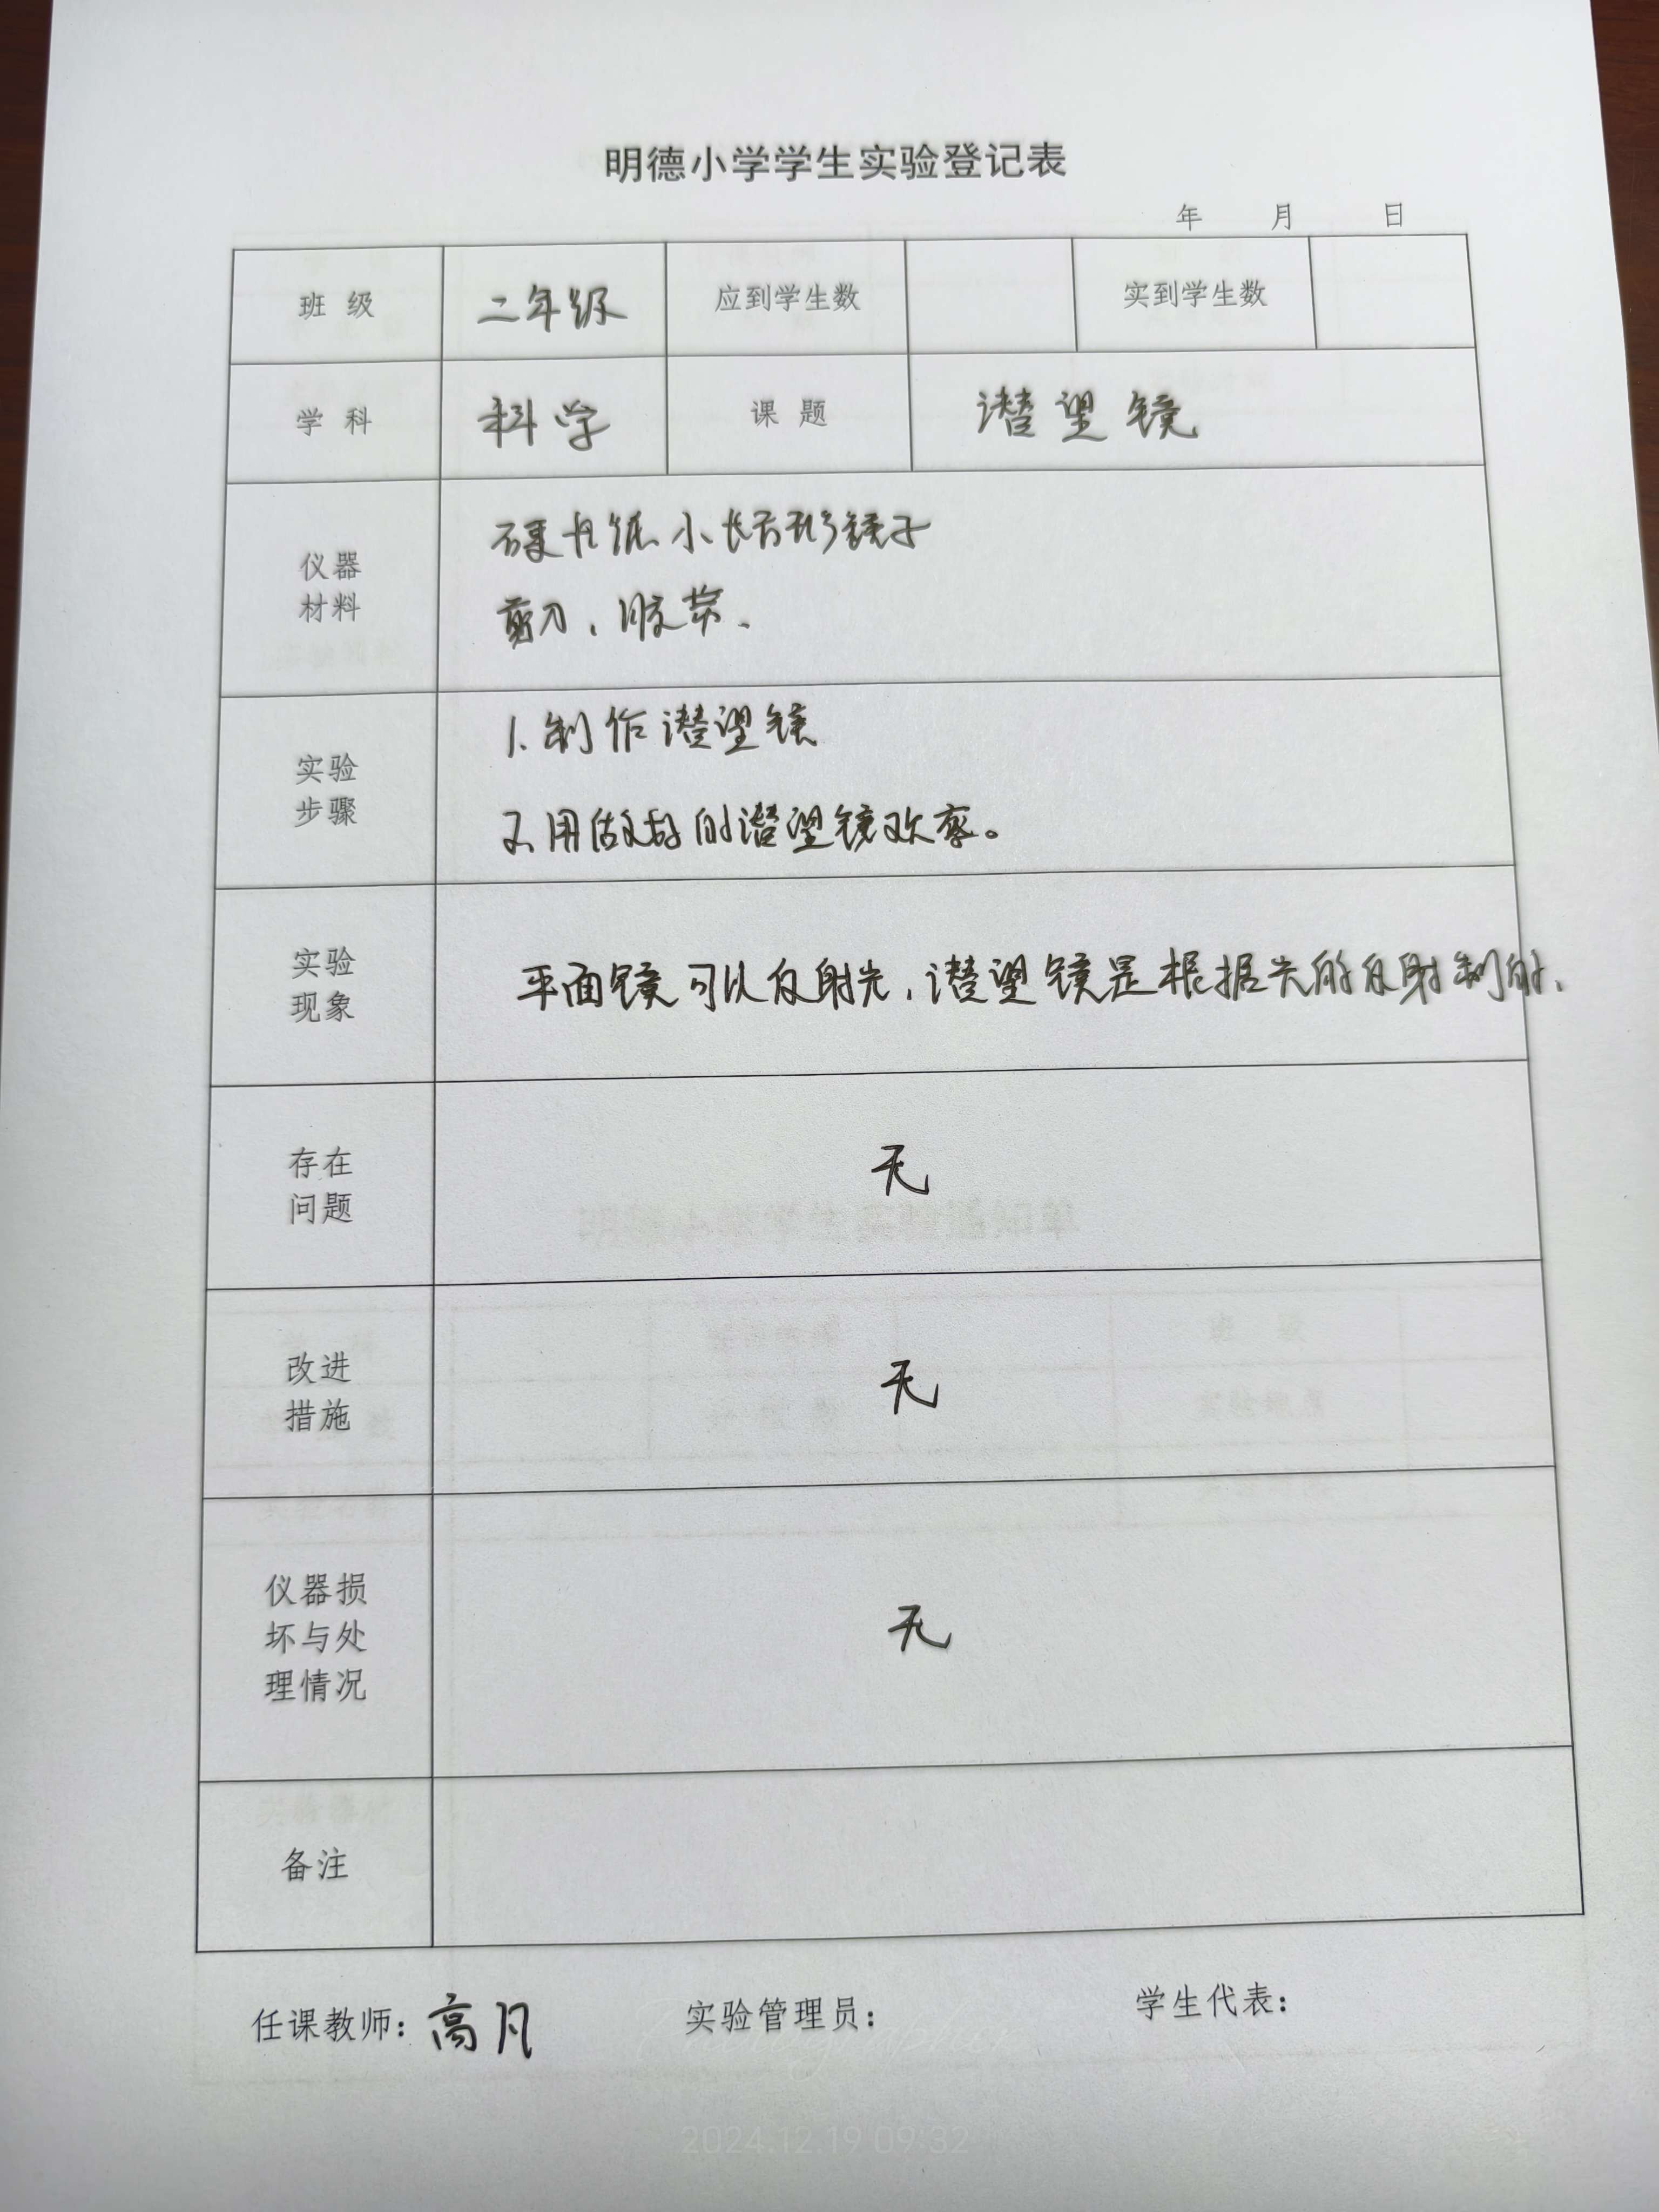 明德小学学生实验登记表
年 月 日
班 级 二年级 应到学生数 实到学生数
学 科 科学 课 题 潜望镜
仪器
材料
硬卡纸 小长方形镜子
剪刀、胶带、
实验
步骤
1.制作潜望镜
2.用做好的潜望镜观察。
实验
现象
平面镜可以反射光,潜望镜是根据光的反射制的、
存在
问题
无
改进
措施
无
仪器损
坏与处
理情况
无
备注
任课教师:高凡 实验管理员: 学生代表:
2024.12.19 09:32